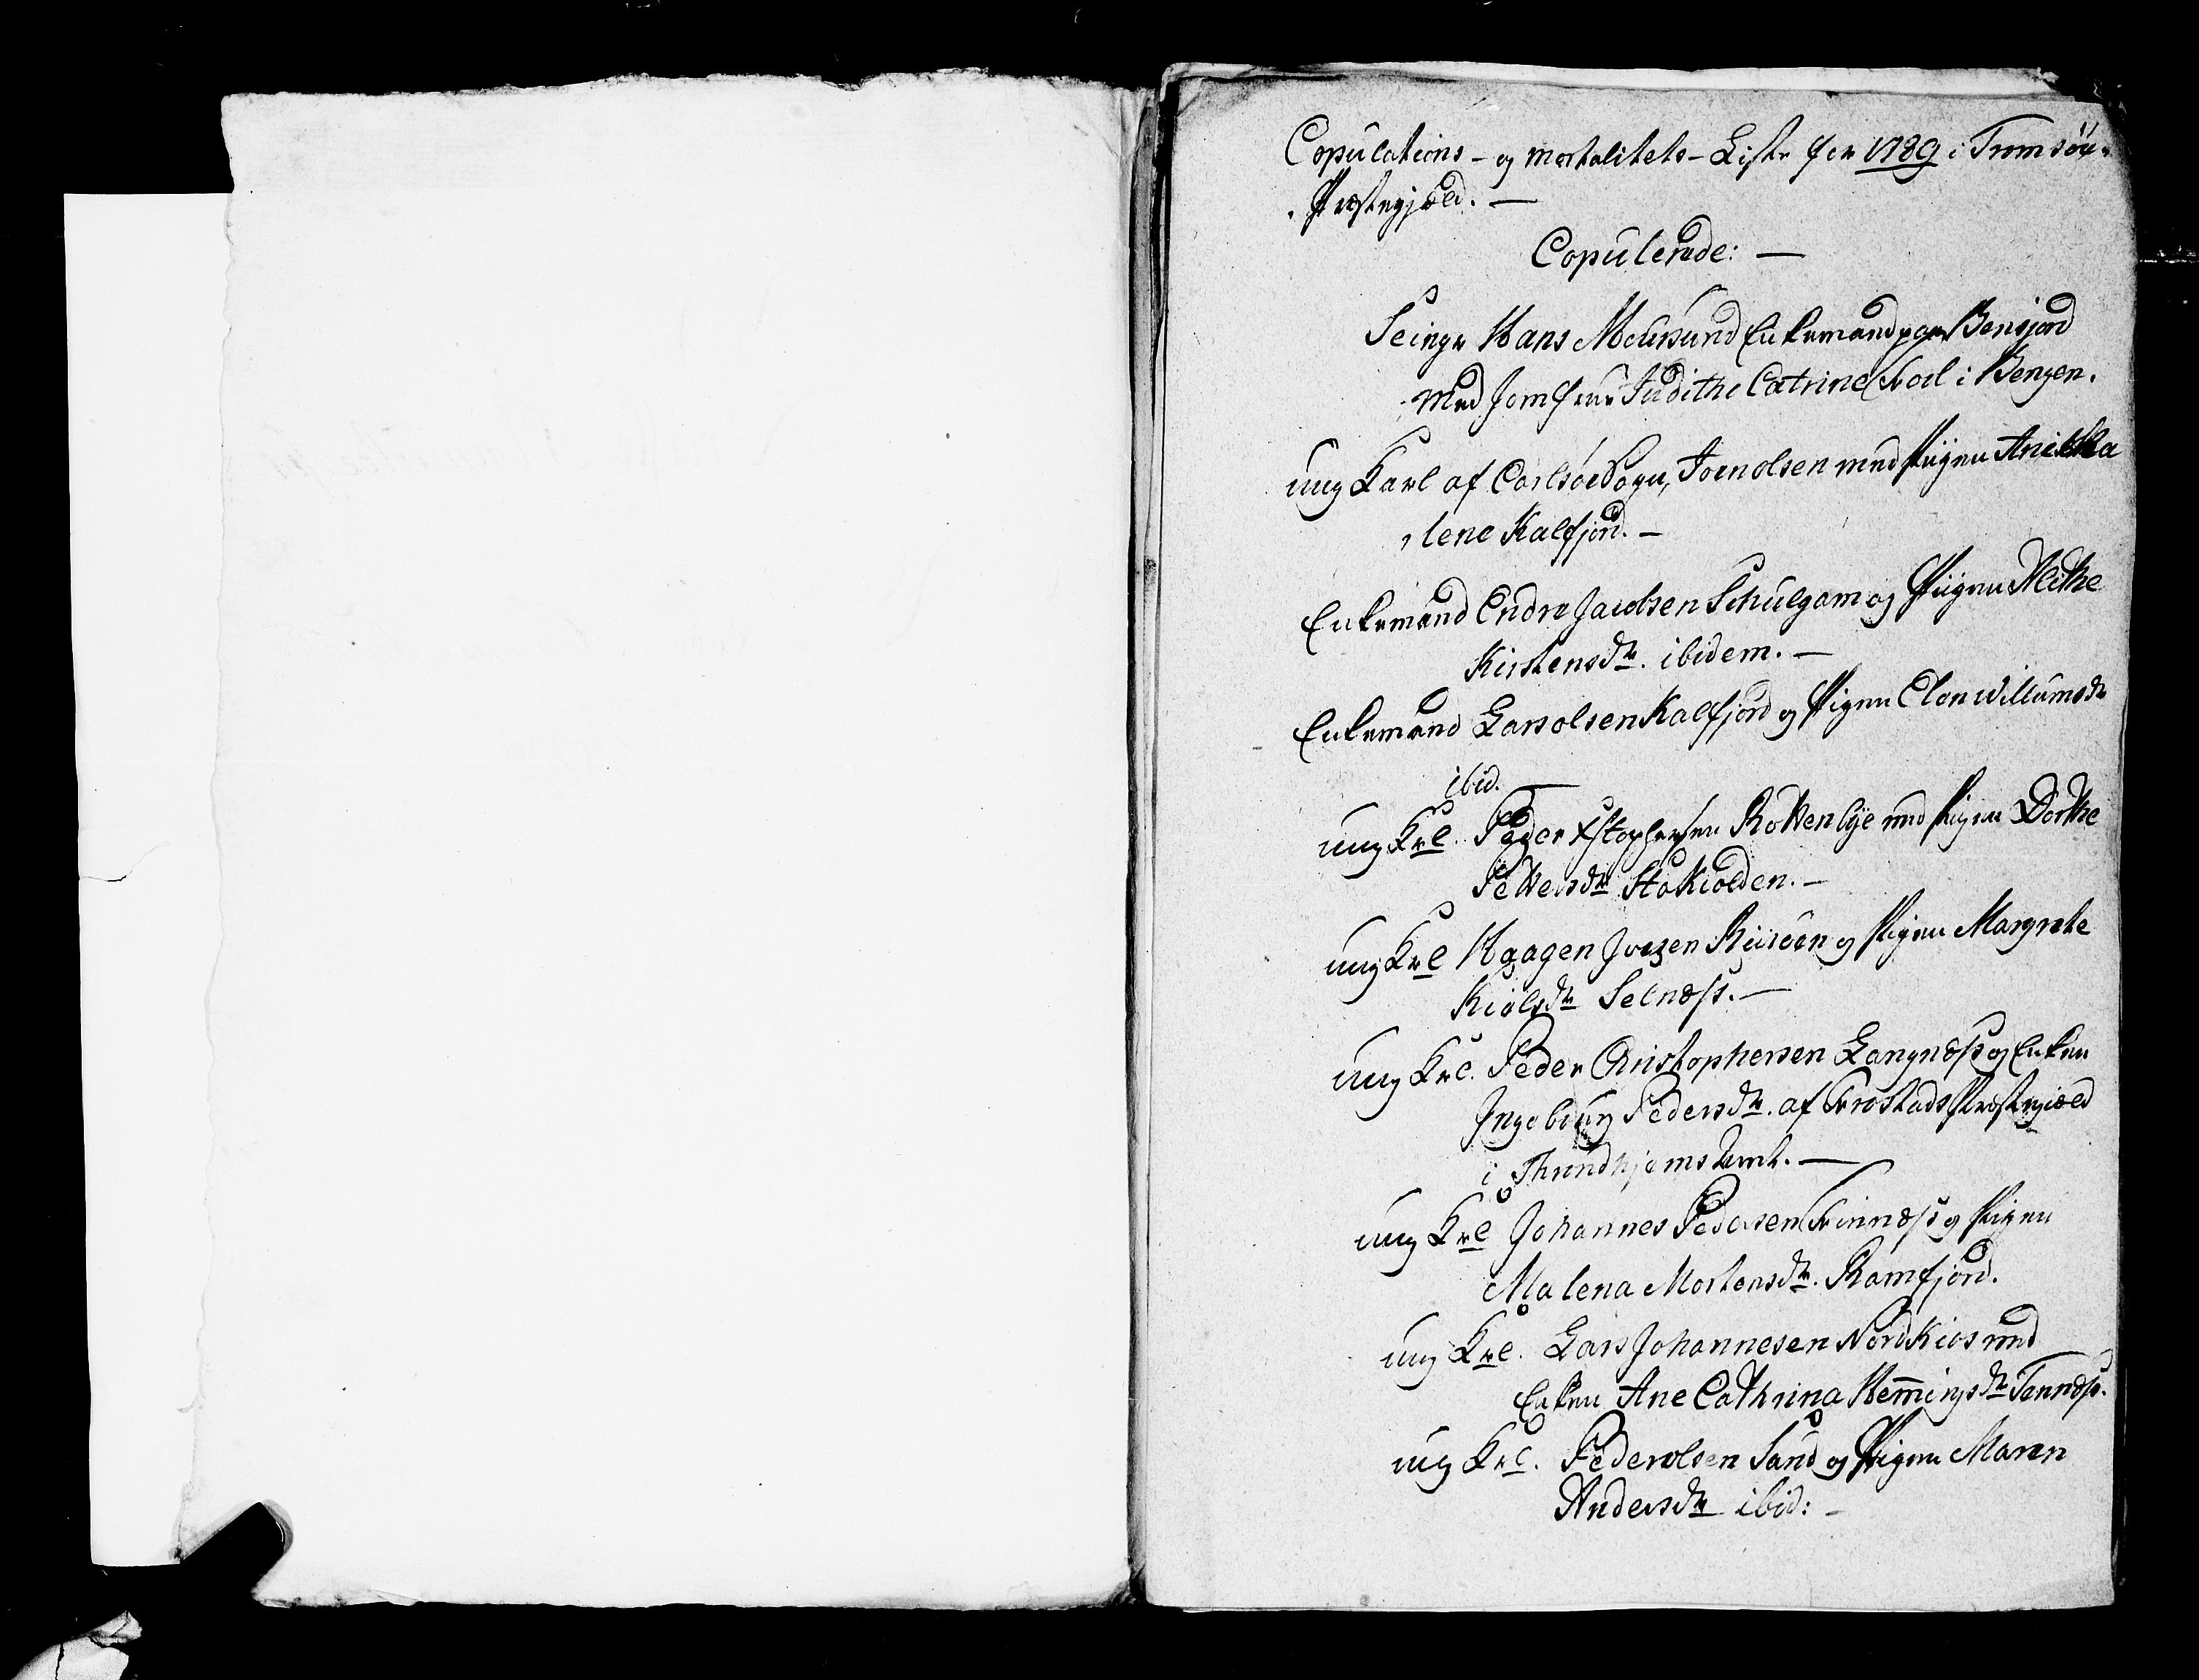 Copulations- og mortalitets-Liste for 1789 i Tromsöe-
Præstegjæld. —
Copulerede: —
Seingr Hans Meursund Enkemand paa Bensjord
med Jomfrue Judithe Catrine Krol i Bergen.
ung Karl af Carlsöe Sogn, Joen olsen med Pigen Ane
lene Kalfjord. —
Enkemand Endre Jacobsen Schulgam og Pigen Alethe
Kirstensdtr. ibidem. —
Enkemand Lars olsen Kalfjord og Pigen Elen Willumsdr
ibid. —
ung Krl. Peder Xstophersen Rottenbye med Pigen Dorthe
Pettersdtr Stakiolden. —
ung Krl Haagen Joensen Riisöen og Pigen Margrete
Kiølsdtr Selnæss. —
ung Krl. Peder Christophersen Langnæss og Enken
Ingebürg Pedersdtr. af Frostads Præstegiæld
i Thrundhjems Amt. —
ung Krl Johannes Pedersen Finnæss og Pigen
Malena Mortensdtr. Ramfjord.
ung Krl. Lars Johannesen Nordkios med
Enken Ane Cathrina Hem̅ingsdtr Tennæss.
ung Krl. Peder olsen Sand og Pigen Maren
Andersdtr ibid: —